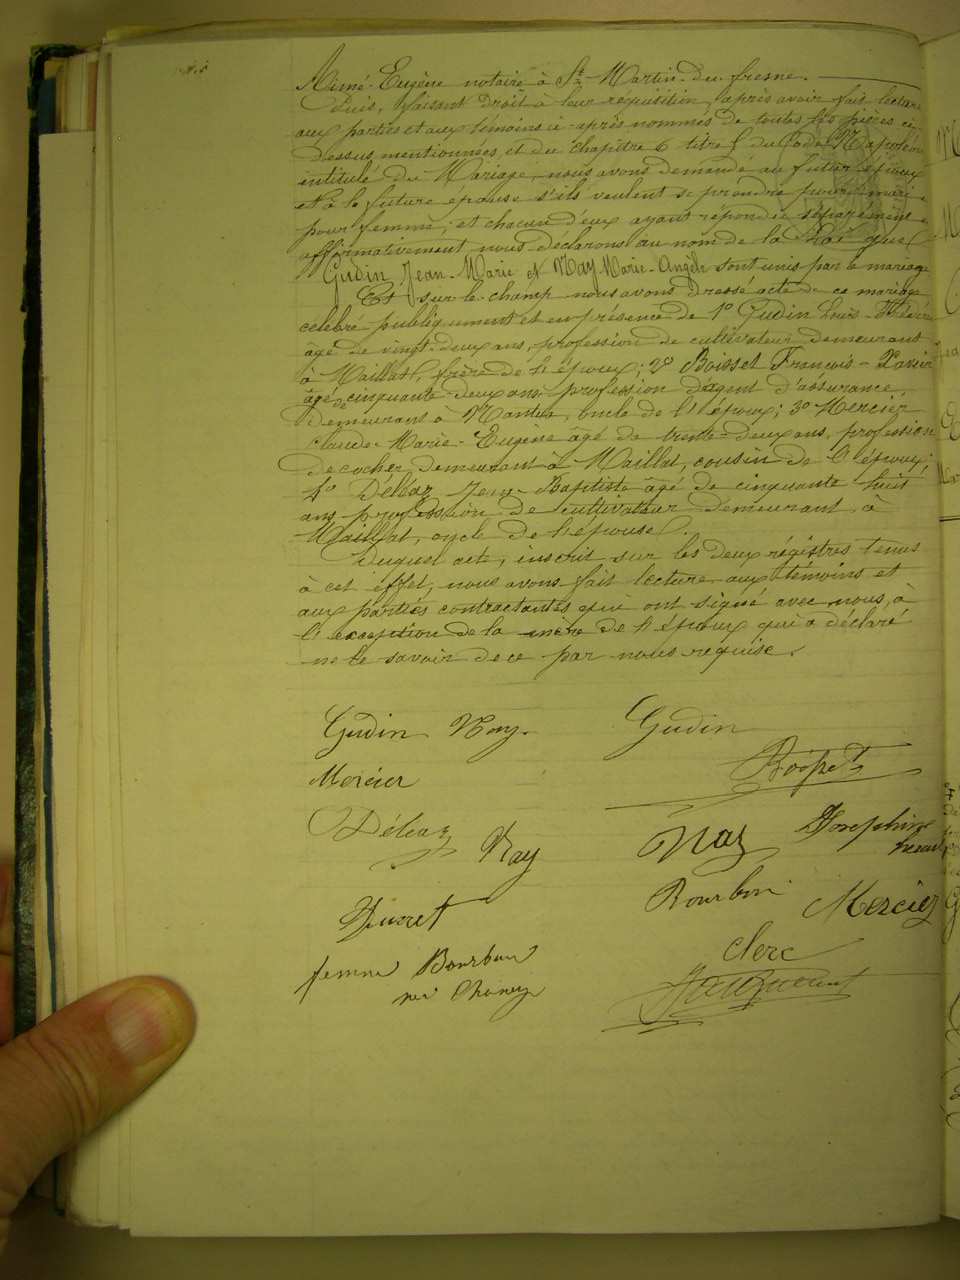 Aimé Eugène notaire à St Martin-du-fresne.
Puis, faisant droit à leur réquisition, après avoir fait lecture
aux parties et aux témoins ci-après nommés de toutes les pièces ci-
dessus mentionnées, et du chapitre 6 titre 5 du Code Napoléon
intitulé du Mariage, nous avons demandé au futur époux
et à la future épouse s'ils veulent se prendre pour mari
pour femme, et chacun d'eux ayant répondu séparément
affirmativement nous déclarons au nom de la Loi que
Gudin Jean-Marie et Nay Marie-Angèle sont unis par le mariage
Et sur le champ nous avons dressé acte de ce mariage
célébré publiquement et en présence de 1° Gudin Louis-
âgé de vingt-deux ans, profession de cultivateur demeurant
à Maillat, frère de l'époux; 2° Boisset François-
âgé de cinquante-deux ans profession d'agent d'assurance
demeurant à Nantua, oncle de l'époux; 3° Mercier
Claude-Marie-Eugène âgé de trente-deux ans, profession
de cocher, demeurant à Maillat, cousin de l'époux;
4° Déléaz Jean-Baptiste âgé de cinquante huit
ans profession de cultivateur demeurant à
Maillat, oncle de l'épouse.
Duquel acte, inscrit sur les deux régistres tenus
à cet effet, nous avons fait lecture aux témoins et
aux parties contractantes qui ont signé avec nous, à
l'exception de la mère de l'époux qui a déclaré
ne le savoir de ce par nous requise.
Gudin Nay Gudin
Mercier
Déléaz Nay Josephine
Nay
Ducret Bourbon Mercier
femme Bourbon Clerc
née